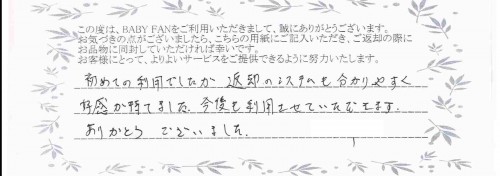 この度は、BABY FANをご利用いただきまして、誠にありがとうございます。
お気づきの点がございましたら、こちらの用紙にご記入いただき、ご返却の際に
お品物に同封していただければ幸いです。
お客様にとって、よりよいサービスをご提供できるように努力いたします。
初めての利用でしたが 返却のシステムも分かりやすく
好感が持てました。今後も利用させていただきます。
ありがとう ございました。